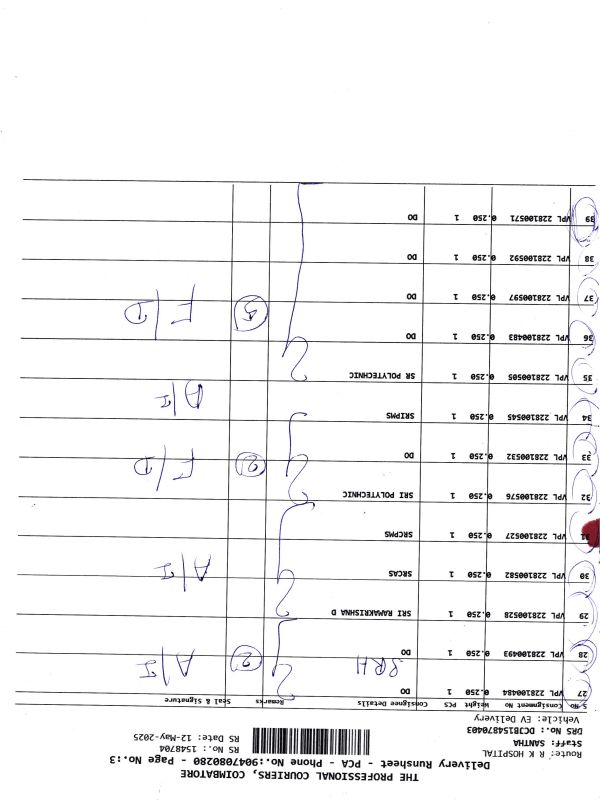 THE PROFESSIONAL COURIERS, COIMBATORE
Delivery Runsheet - PCA - Phone No.:9047080280 - Page No.:3
Route: R K HOSPITAL RS No.: 1548704
Staff: SANTHA RS Date: 12-May-2025
DRS No.:
Vehicle: EV Delivery
S.No Consignment No Weight PCS Consignee Details Remarks Seal & Signature
27 VPL 228100484 0.250 1 DO
28 VPL 228100493 0.250 1 DO SRH 2 A/I
29 VPL 228100528 0.250 1 SRI RAMAKRISHNA D
30 VPL 228100582 0.250 1 SRCAS A/I
31 VPL 228100527 0.250 1 SRCPMS
32 VPL 228100576 0.250 1 SRI POLYTECHNIC
33 VPL 228100532 0.250 1 DO 2 F/D
34 VPL 228100545 0.250 1 SRIPMS A/I
35 VPL 228100505 0.250 1 SR POLYTECHNIC
36 VPL 228100483 0.250 1 DO
37 VPL 228100597 0.250 1 DO 5 F/D
38 VPL 228100592 0.250 1 DO
39 VPL 228100571 0.250 1 DO